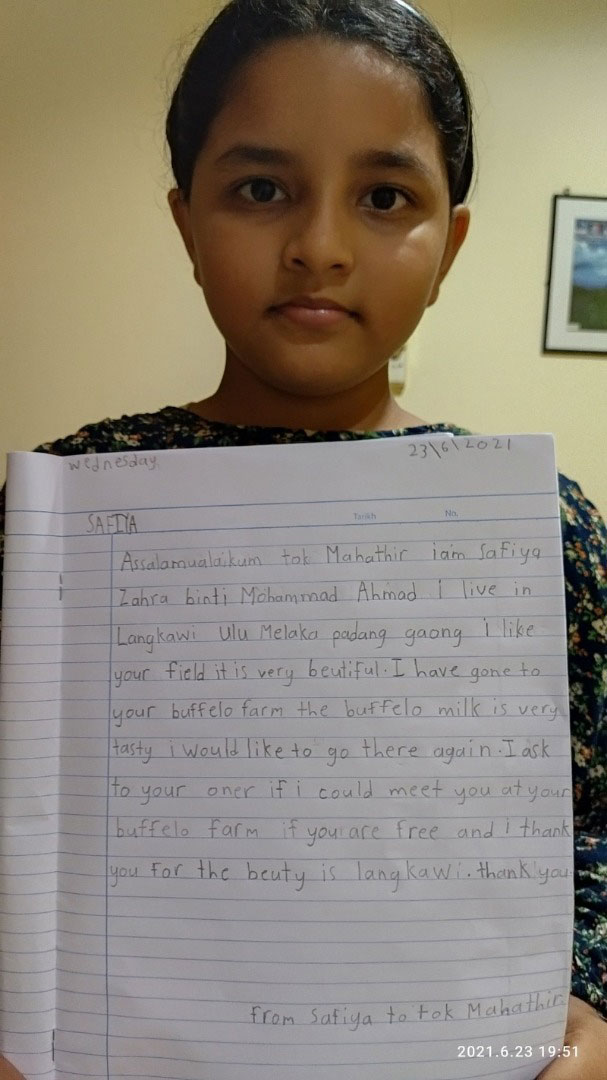 wednesday
23\6\2021
SAFIYA
Tarikh
No.
Assalamualaikum tok Mahathir iam Safiya
Zahra binti Mohammad Ahmad i live in
Langkawi Ulu Melaka padang gaong i like
your field it is very beutiful. I have gone to
your buffelo farm the buffelo milk is very
tasty i would like to go there again. I ask
to your oner if i could meet you at your
buffelo farm if you are free and i thank
you For the beuty is langkawi. thank you
From Safiya to tok Mahathir
2021.6.23 19:51